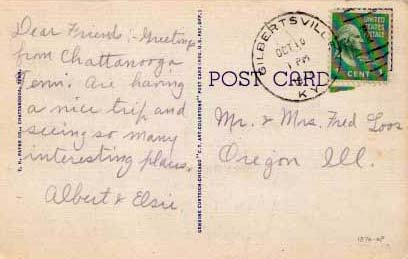 Dear Friends:- Greetings
from Chattanooga
Tenn. Are having
a nice trip and
seeing so many
interesting places.
Albert & Elsie.
GENUINE CURTEICH-CHICAGO "C.T. ART-COLORTONE" POST CARD (REG. U.S. PAT. OFF.)
POST CARD
GILBERTSVILLE
OCT 10
1 PM
KY.
UNITED
STATES
POSTAGE
CENT
Mr. & Mrs. Fred Loos
Oregon Ill.